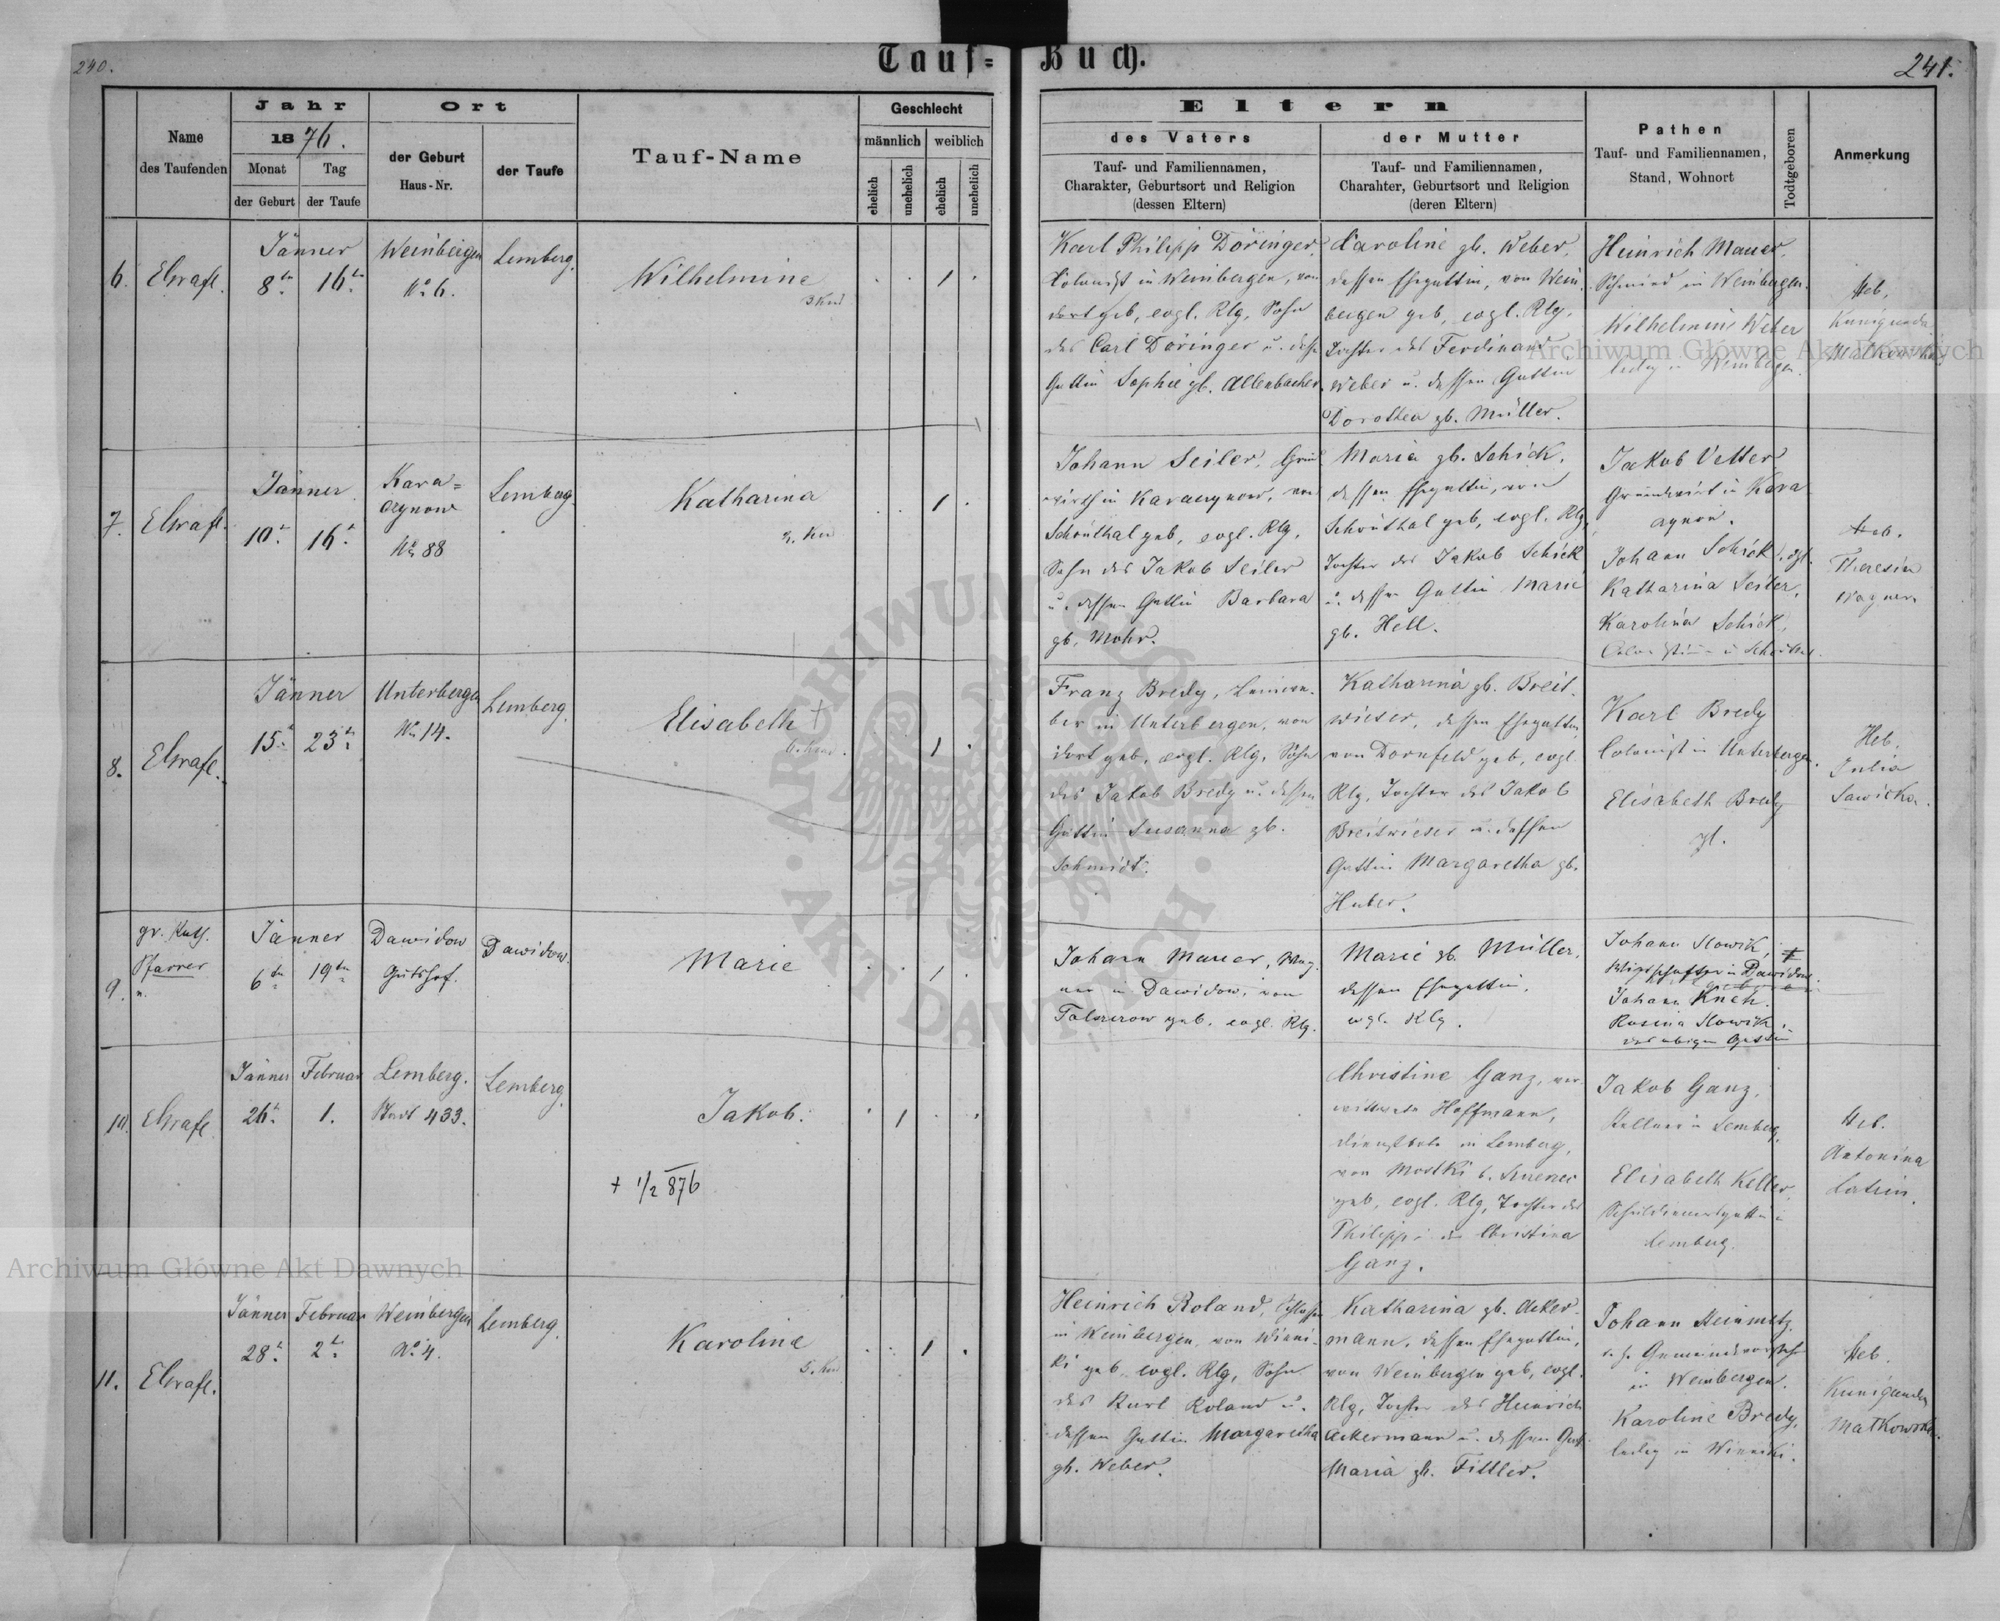 240.
Tauf=Buch.
241.
Name
des Taufenden
Jahr
1876.
Monat
der Geburt
Tag
der Taufe
Ort
der Geburt
Haus-Nr.
der Taufe
Tauf-Name
Geschlecht
männlich
weiblich
ehelich
unehelich
ehelich
unehelich
Eltern
des Vaters
Tauf- und Familiennamen,
Charakter, Geburtsort und Religion
(dessen Eltern)
der Mutter
Tauf- und Familiennamen,
Charahter, Geburtsort und Religion
(deren Eltern)
Pathen
Tauf- und Familiennamen,
Stand, Wohnort
Todtgeboren
Anmerkung
6.
Jänner
8
16
Weinbergen
No 6.
Lemberg.
Wilhelmine
1
Karl Philipp Döringer,
Colonist in Weinbergen, von
dort geb, evgl. Rlg, Sohn
des Carl Döringer u. dess.
Gattin Sophie gb. Allenbacher.
Caroline gb. Weber,
dessen Ehegattin, von Wein
bergen geb, evgl. Rlg,
Tochter des Ferdinand
Weber u. dessen Gattin
Dorothea gb. Müller.
Heinrich Mauer,
Schmied in Weinbergen.
Wilhelmine Weber
ledig in Weinbergen.
Heb.
Kunigunda
Malkowska
7.
Jänner
10
16
Kara=
czynow
No 88
Lemberg.
Katharina
1
Johann Seiler, Grund
wirth in Karaczynow, von
Schönthal geb, evgl. Rlg,
Sohn des Jakob Seiler
u. dessen Gattin Barbara
gb. Mohr.
Maria gb. Schick,
dessen Ehegattin, von
Schönthal geb, evgl. Rlg,
Tochter des Jakob Schick
u. dessen Gattin Marie
gb. Hell.
Jakob Vetter
Grundwirt in Kara
czynow.
Johann Schick,
Katharina Seiler,
Karolina Schick,
Heb.
Theresia
Wagner
8.
Jänner
15
23
Unterbergen
No 14.
Lemberg.
Elisabeth +
1
Franz Bredy,
in Unterbergen, von
dort geb, evgl. Rlg, Sohn
des Jakob Bredy u. dessen
Gattin Susanna gb.
Schmidt.
Katharina gb. Breit
wieser, dessen Ehegattin,
von Dornfeld geb, evgl.
Rlg, Tochter des Jakob
Breitwieser u. dessen
Gattin Margaretha gb.
Huber.
Karl Bredy
Colonist in Unterbergen.
Elisabeth Bredy
Heb.
Julia
Sawicka.
9.
gr. Kath.
Pfarrer
Jänner
6ten
19ten
Dawidow
Gutshof.
Dawidow.
Marie
1
Johann Mauer, Wag
ner in Dawidow, von
geb. evgl. Rlg.
Marie gb. Müller,
dessen Ehegattin,
evgl. Rlg.
Johann Slowik,
in Dawidow
Johann
Rosina Slowik,
10.
Jänner
26
Februar
1.
Lemberg.
Stadt 433.
Lemberg.
Jakob.
1
+ 1/2 876
Christine Ganz, ver
wittwete Hoffmann,
Dienstbote in Lemberg,
von Mostki
geb, evgl. Rlg, Tochter des
Philipp u. Christina
Ganz.
Jakob Ganz,
Kellner in Lemberg,
Elisabeth Keller,
Schuldienersgattin in
Lemberg.
Heb.
Antonina
11.
Jänner
28
Februar
2
Weinbergen
No 4.
Lemberg.
Karoline
1
Heinrich Roland, Schlosser
in Weinbergen, von Winni
ki geb, evgl. Rlg, Sohn
des Karl Roland u.
dessen Gattin Margaretha
gb. Weber.
Katharina gb. Acker
mann, dessen Ehegattin,
von Weinbergen geb, evgl.
Rlg, Tochter des Heinrich
Ackermann u. dessen Gatt.
Maria gb. Fittler.
Johann Heinmetz
Gemeindevorsteher
in Weinbergen.
Karoline Bredy,
ledig in Winniki.
Heb.
Kunigunda
Malkowska.
Archiwum Główne Akt Dawnych
Archiwum Główne Akt Dawnych